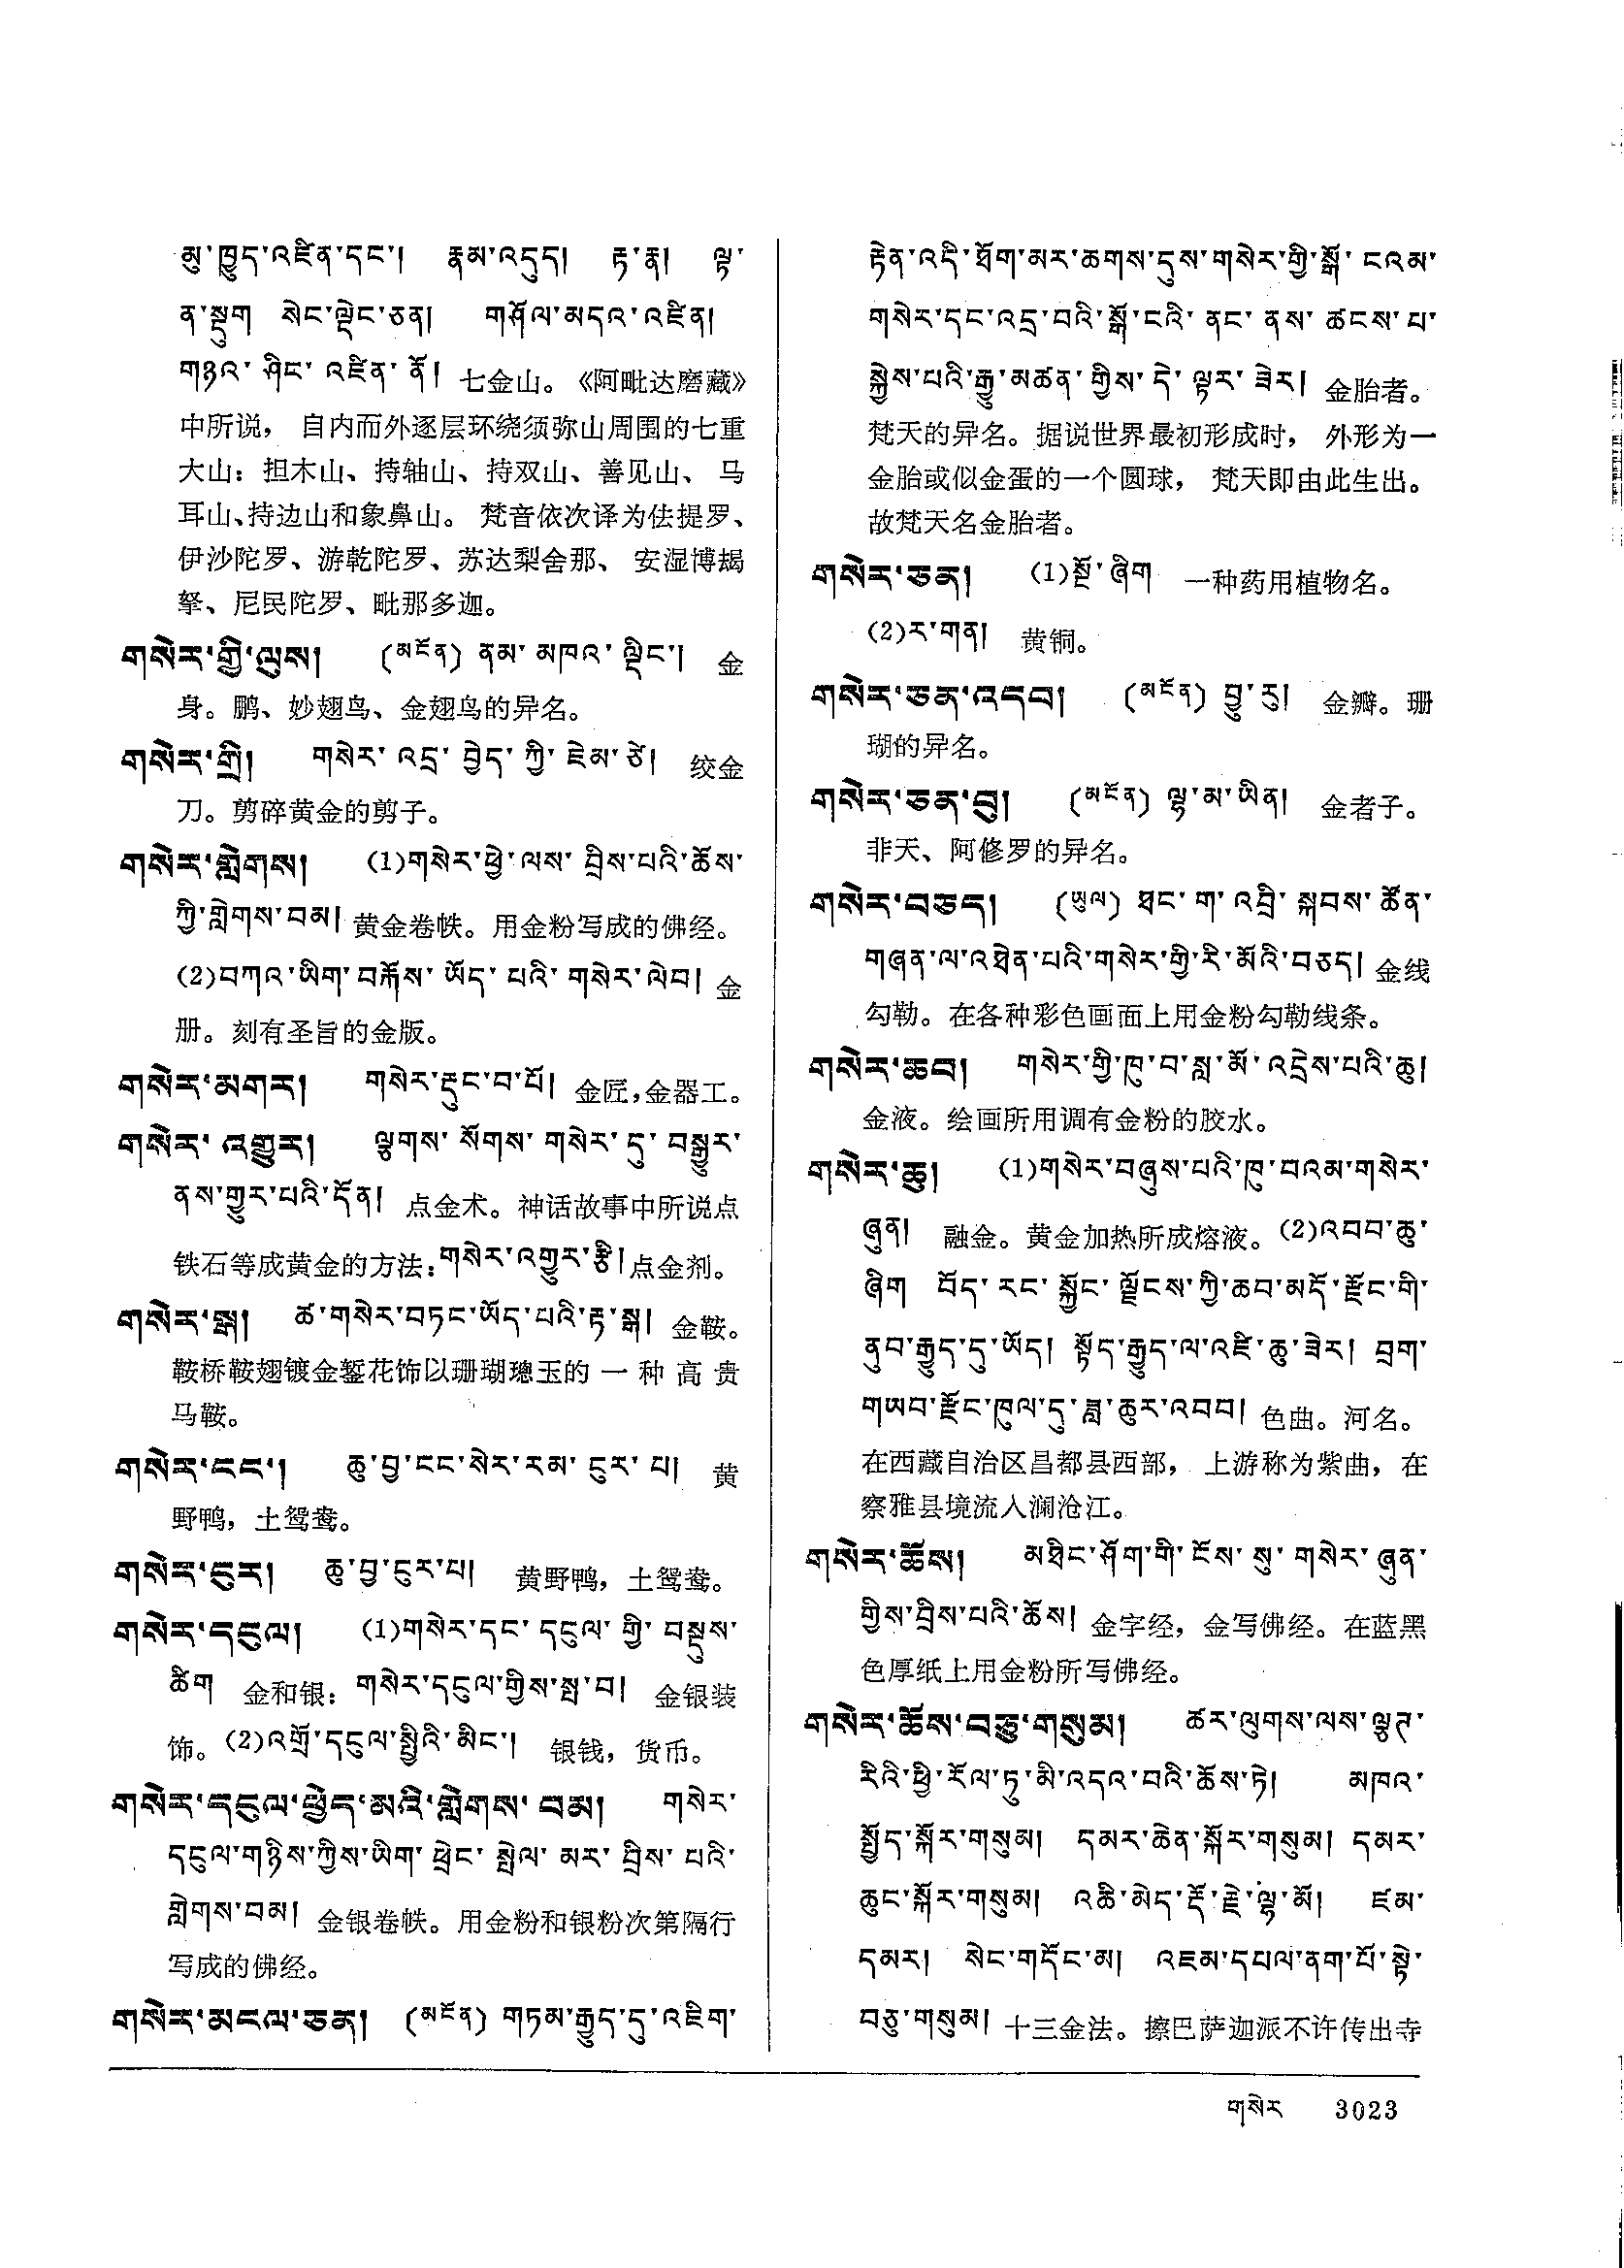 མུ་ཁྱུད་འཛིན་དང་། རྣམ་འདུད། རྟ་རྣ། ལྟ་
ན་སྡུག སེང་ལྡེང་ཅན། གཤོལ་མདའ་འཛིན།
གཉའ་ཤིང་འཛིན་ནོ། 七金山。《阿毗达磨藏》
中所说， 自内而外逐层环绕须弥山周围的七重
大山：担木山、持轴山、持双山、善见山、 马
耳山、持边山和象鼻山。 梵音依次译为佉提罗、
伊沙陀罗、游乾陀罗、苏达梨舍那、 安湿博羯
拏、尼民陀罗、毗那多迦。
གསེར་གྱི་ལུས། (མངོན) ནམ་མཁའ་ལྡིང་། 金
身。鹏、妙翅鸟、金翅鸟的异名。
གསེར་གྲི། གསེར་འདྲ་བྱེད་ཀྱི་ཇེམ་ཙེ། 绞金
刀。剪碎黄金的剪子。
གསེར་གླེགས། (1)གསེར་ཕྱེ་ལས་བྲིས་པའི་ཆོས་
ཀྱི་གླེགས་བམ། 黄金卷帙。用金粉写成的佛经。
(2)བཀའ་ཡིག་བརྐོས་ཡོད་པའི་གསེར་ལེབ། 金
册。刻有圣旨的金版。
གསེར་མགར། གསེར་རྡུང་བ་པོ། 金匠，金器工。
གསེར་འགྱུར། ལྕགས་སོགས་གསེར་དུ་བསྒྱུར་
ནས་གྱུར་པའི་དོན། 点金术。神话故事中所说点
铁石等成黄金的方法：གསེར་འགྱུར་རྩི། 点金剂。
གསེར་སྒ། ཚ་གསེར་བཏང་ཡོད་པའི་རྟ་སྒ། 金鞍。
鞍桥鞍翅镀金錾花饰以珊瑚璁玉的一种高贵
马鞍。
གསེར་ངང་། ཆུ་བྱ་ངང་སེར་རམ་ངུར་པ། 黄
野鸭，土鸳鸯。
གསེར་ངུར། ཆུ་བྱ་ངུར་པ། 黄野鸭，土鸳鸯。
གསེར་དངུལ། (1)གསེར་དང་དངུལ་གྱི་བསྡུས་
ཚིག 金和银：གསེར་དངུལ་གྱིས་སྤྲ་བ། 金银装
饰。(2)འགྲོ་དངུལ་སྤྱིའི་མིང་། 银钱，货币。
གསེར་དངུལ་ཕྱེད་མའི་གླེགས་བམ། གསེར་
དངུལ་གཉིས་ཀྱིས་ཡིག་ཕྲེང་སྤེལ་མར་བྲིས་པའི་
གླེགས་བམ། 金银卷帙。用金粉和银粉次第隔行
写成的佛经。
གསེར་མངལ་ཅན། (མངོན) གཏམ་རྒྱུད་དུ་འཇིག་
རྟེན་འདི་ཐོག་མར་ཆགས་དུས་གསེར་གྱི་སྒོ་ངའམ་
གསེར་དང་འདྲ་བའི་སྒོ་ངའི་ནང་ནས་ཚངས་པ་
སྐྱེས་པའི་རྒྱུ་མཚན་གྱིས་དེ་ལྟར་ཟེར། 金胎者。
梵天的异名。据说世界最初形成时， 外形为一
金胎或似金蛋的一个圆球， 梵天即由此生出。
故梵天名金胎者。
གསེར་ཅན། (1)སྔོ་ཞིག 一种药用植物名。
(2)ར་གན། 黄铜。
གསེར་ཅན་འདབ། (མངོན) བྱུ་རུ། 金瓣。珊
瑚的异名。
གསེར་ཅན་བུ། (མངོན) ལྷ་མ་ཡིན། 金者子。
非天、阿修罗的异名。
གསེར་བཅད། (ཡུལ) ཐང་ག་འབྲི་སྐབས་ཚོན་
གཞན་ལ་འཐེན་པའི་གསེར་གྱི་རི་མོའི་བཅད། 金线
勾勒。在各种彩色画面上用金粉勾勒线条。
གསེར་ཆབ། གསེར་གྱི་ཁུ་བ་སླ་མོ་འདྲེས་པའི་ཆུ།
金液。绘画所用调有金粉的胶水。
གསེར་ཆུ། (1)གསེར་བཞུས་པའི་ཁུ་བའམ་གསེར་
ཞུན། 融金。黄金加热所成熔液。(2)འབབ་ཆུ་
ཞིག བོད་རང་སྐྱོང་ལྗོངས་ཀྱི་ཆབ་མདོ་རྫོང་གི་
ནུབ་རྒྱུད་དུ་ཡོད། སྟོད་རྒྱུད་ལ་འཛི་ཆུ་ཟེར། བྲག་
གཡབ་རྫོང་ཁུལ་དུ་ཟླ་ཆུར་འབབ། 色曲。河名。
在西藏自治区昌都县西部， 上游称为紫曲，在
察雅县境流入澜沧江。
གསེར་ཆོས། མཐིང་ཤོག་གི་ངོས་སུ་གསེར་ཞུན་
གྱིས་བྲིས་པའི་ཆོས། 金字经，金写佛经。在蓝黑
色厚纸上用金粉所写佛经。
གསེར་ཆོས་བཅུ་གསུམ། ཚར་ལུགས་ལས་ལྕཊ་
རིའི་ཕྱི་རོལ་ཏུ་མི་འདའ་བའི་ཆོས་ཏེ། མཁའ་
སྤྱོད་སྐོར་གསུམ། དམར་ཆེན་སྐོར་གསུམ། དམར་
ཆུང་སྐོར་གསུམ། འཆི་མེད་རྡོ་རྗེ་ལྷ་མོ། ཛམ་
དམར། སེང་གདོང་མ། འཇམ་དཔལ་ནག་པོ་སྟེ་
བཅུ་གསུམ། 十三金法。擦巴萨迦派不许传出寺
གསེར 3023